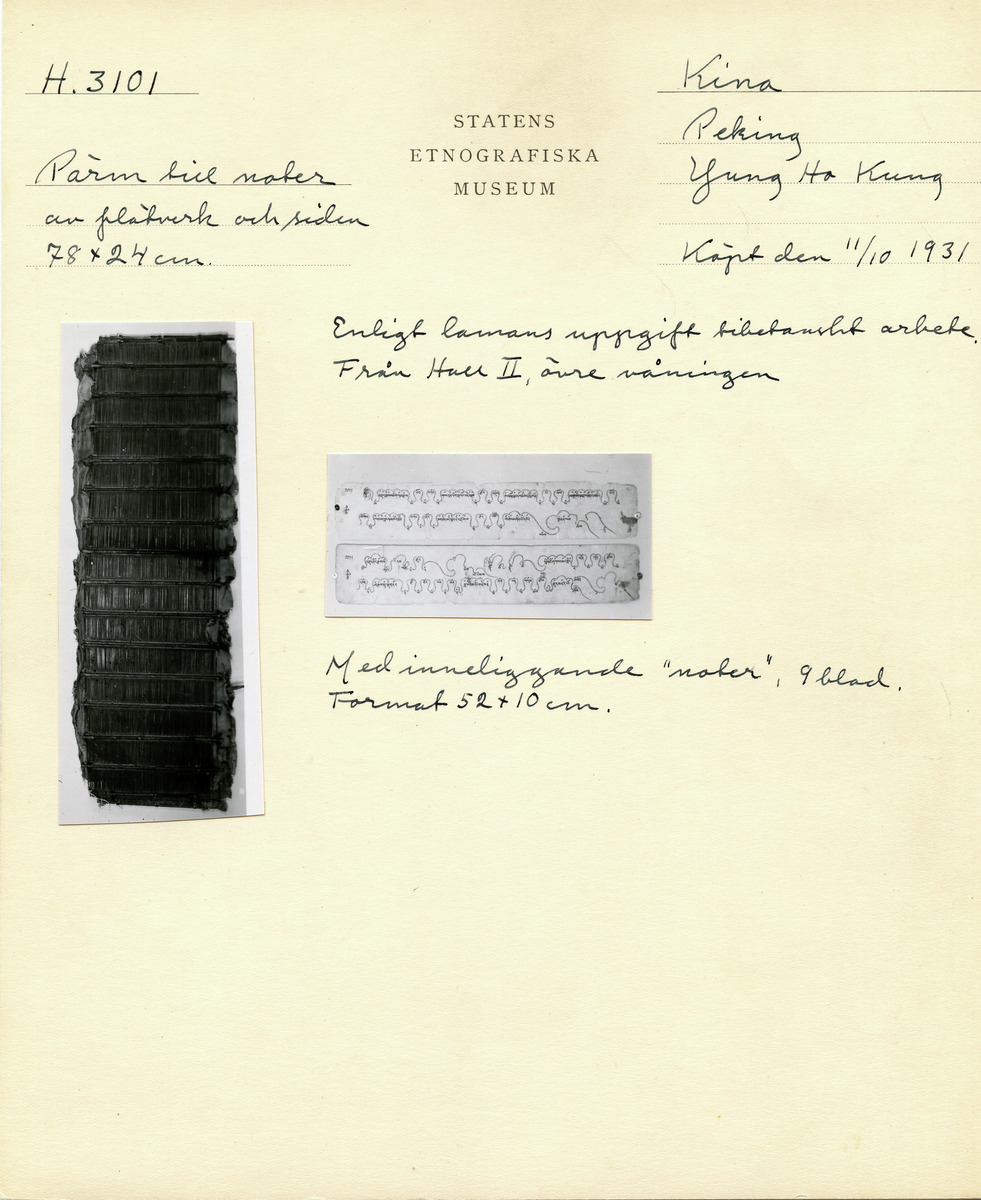 H. 3101
Pärm till noter
av flätverk och siden
78 x 24 cm.
STATENS
ETNOGRAFISKA
MUSEUM
Kina
Peking
Yung Ho Kung
Köpt den 11/10 1931
Enligt lamans uppgift tibetanskt arbete.
Från Hall II, övre våningen
Med inneliggande "noter", 9 blad.
Format 52 x 10 cm.